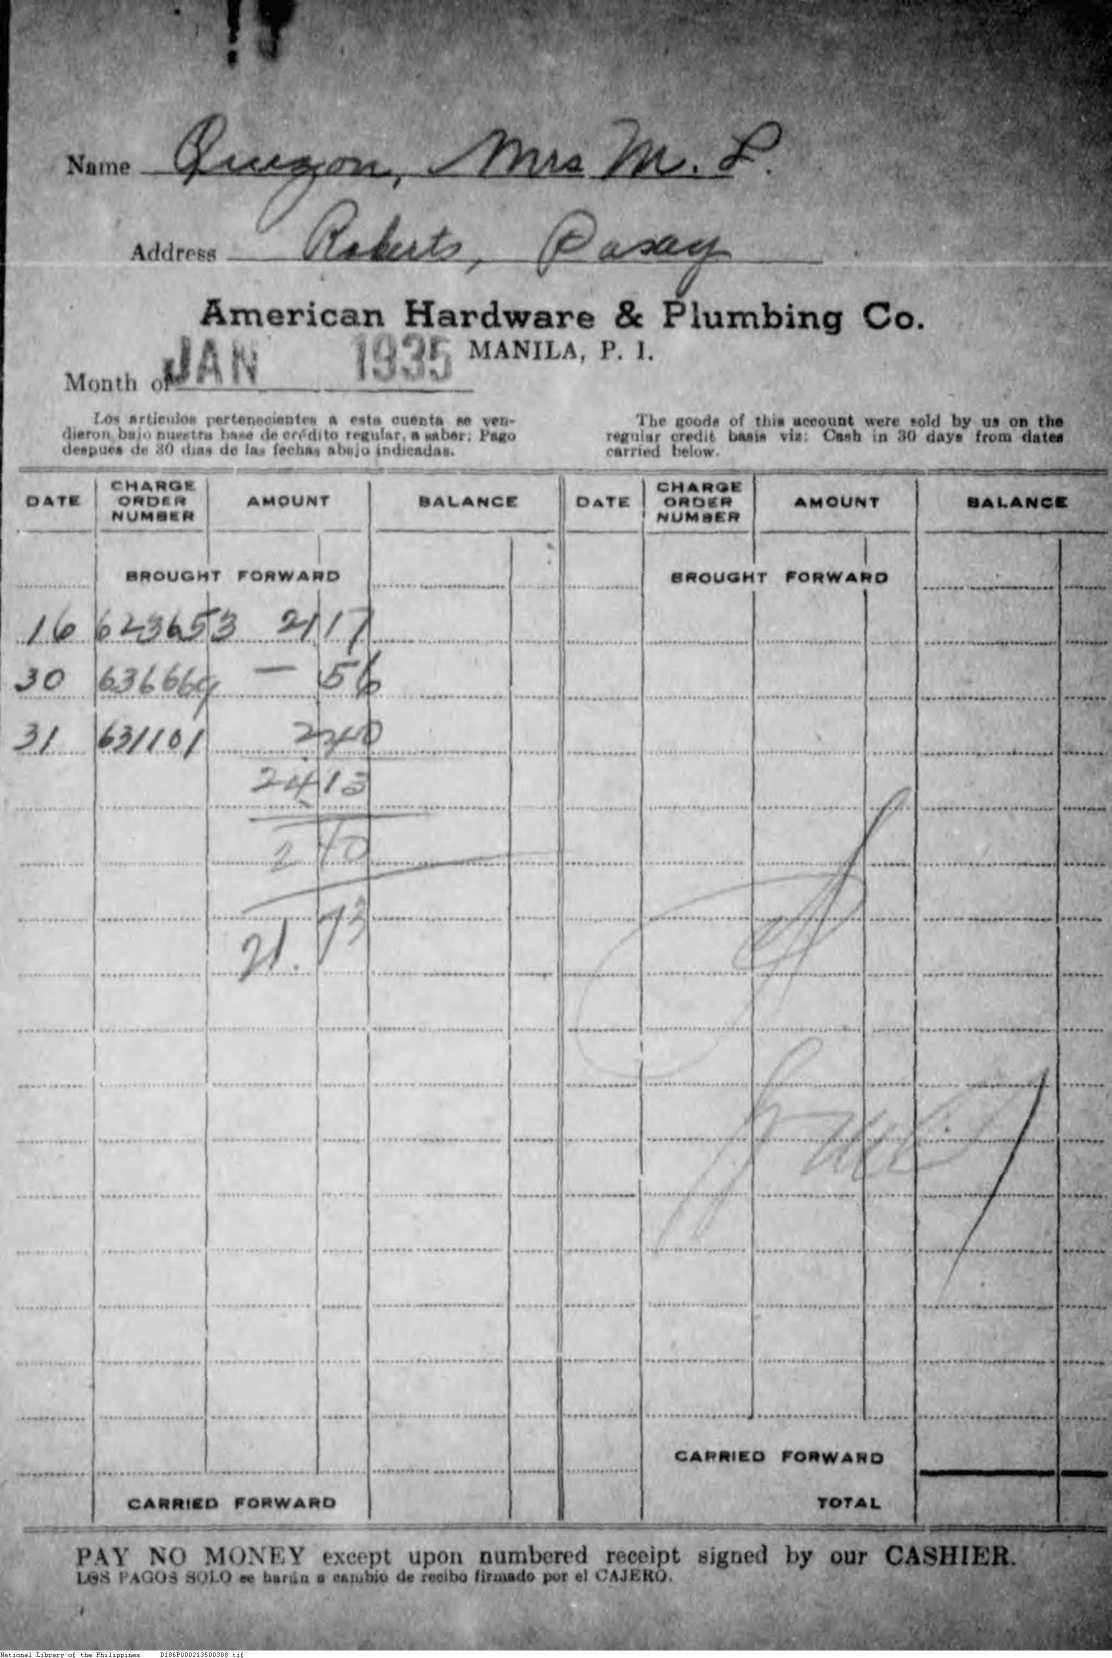 Name Quezon, Mrs M. L.
Address Roberts, Pasay
American Hardware & Plumbing Co.
MANILA, P. I.
Month of JAN 1935
Los artículos pertenecientes a esta cuenta se ven-
dieron bajo nuestra base de crédito regular, a saber: Pago
despues de 30 dias de las fechas abajo indicadas.
The goods of this account were sold by us on the
regular credit basis viz: Cash in 30 days from dates
carried below.
DATE CHARGE ORDER NUMBER AMOUNT BALANCE DATE CHARGE ORDER NUMBER AMOUNT BALANCE
BROUGHT FORWARD BROUGHT FORWARD
16 623653 21 17
30 636669 — 56
31 631101 2 40
24 13
2 40
21. 73
CARRIED FORWARD
CARRIED FORWARD TOTAL
PAY NO MONEY except upon numbered receipt signed by our CASHIER.
LOS PAGOS SOLO se harán a cambio de recibo firmado por el CAJERO.
National Library of the Philippines D186P000213500308.tif